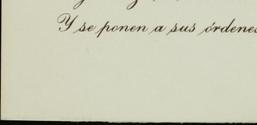 Y se ponen a sus órdenes